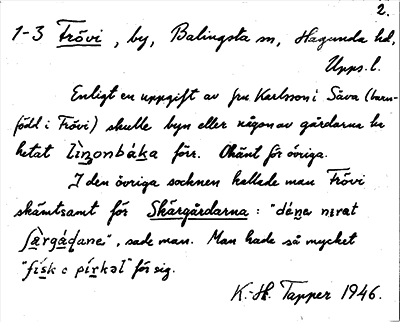 2.
1-3 Frövi, by, Balingsta sn, Hagunda hd,
Upps.l.
Enligt en uppgift av fru Karlsson i Säva (barn-
född i Frövi) skulle byn eller någon av gårdarna ha
hetat lìnonbáka förr. Okänt för övriga.
I den övriga socknen kallade man Frövi
skämtsamt för Skärgårdarna: "déne nɪrat
ʃærgáɖane", sade man. Man hade så mycket
"físk o pírkəl" för sig.
K.-H. Tapper 1946.